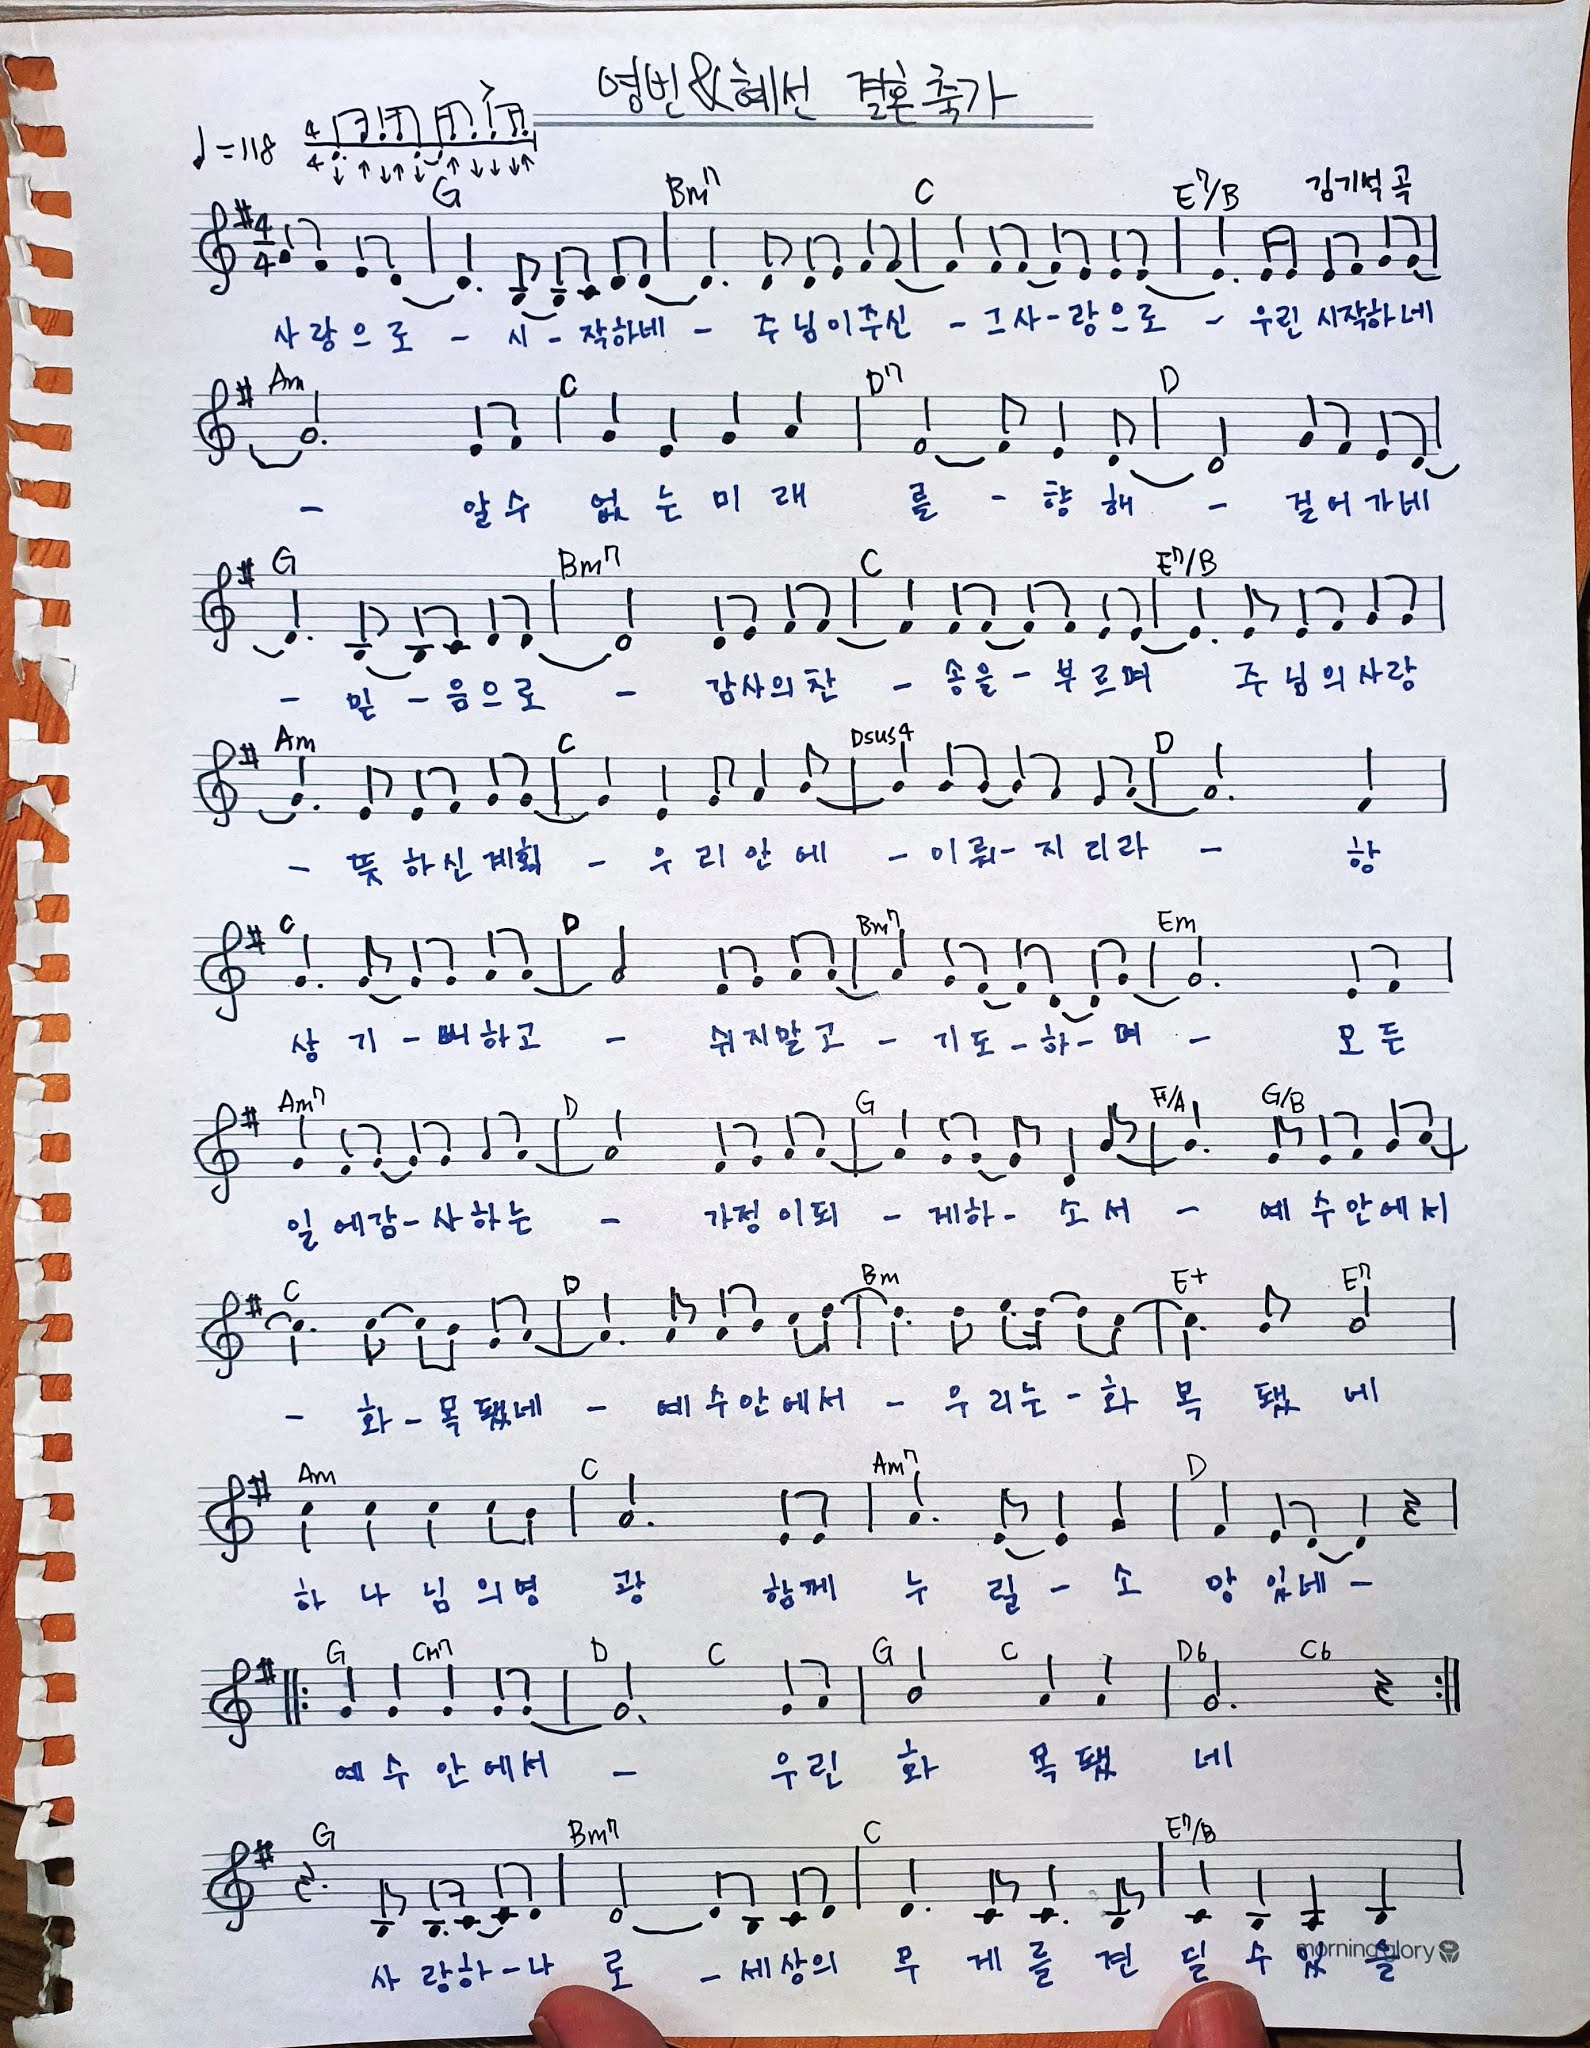 영빈&혜선 결혼축가
♩=118 4/4
G Bm7 C E7/B 김기석 곡
4/4
사랑으로 - 시-작하네 - 주님이주신 - 그사-랑으로 - 우린 시작하네
Am C D7 D
- 알수 없는미래 를 - 향해 - 걸어가네
G Bm7 C E7/B
- 믿-음으로 - 감사의찬 - 송을-부르며 주님의사랑
Am C Dsus4 D
- 뜻하신계획 - 우리안에 - 이뤄-지리라 - 항
C D Bm7 Em
상기-뻐하고 - 쉬지말고 - 기도-하-며 - 모든
Am7 D G F/A G/B
일에감-사하는 - 가정이되 - 게하- 소서 - 예수안에서
C D Bm E+ E7
- 화-목됐네 - 예수안에서 - 우리는-화목 됐네
Am C Am7 D
하나님의영광 함께 누릴-소망있네-
G CM7 D C G C D6 C6
예수안에서 - 우린 화 목됐 네
G Bm7 C E7/B
사랑하-나 로 -세상의 무게를견딜수있을
morningglory